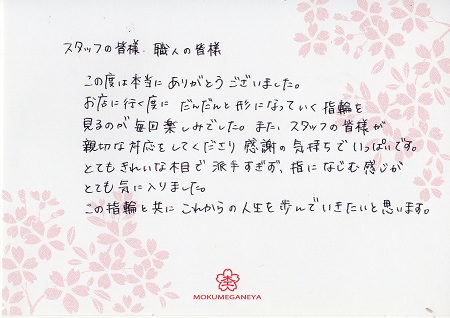 スタッフの皆様、職人の皆様
この度は本当にありがとうございました。
お店に行く度に だんだんと形になっていく指輪を
見るのが毎回楽しみでした。また、スタッフの皆様が
親切な対応をしてくださり 感謝の気持ちでいっぱいです。
とてもきれいな木目で 派手すぎず、指になじむ感じが
とても気に入りました。
この指輪と共に これからの人生を歩んでいきたいと思います。
MOKUMEGANEYA